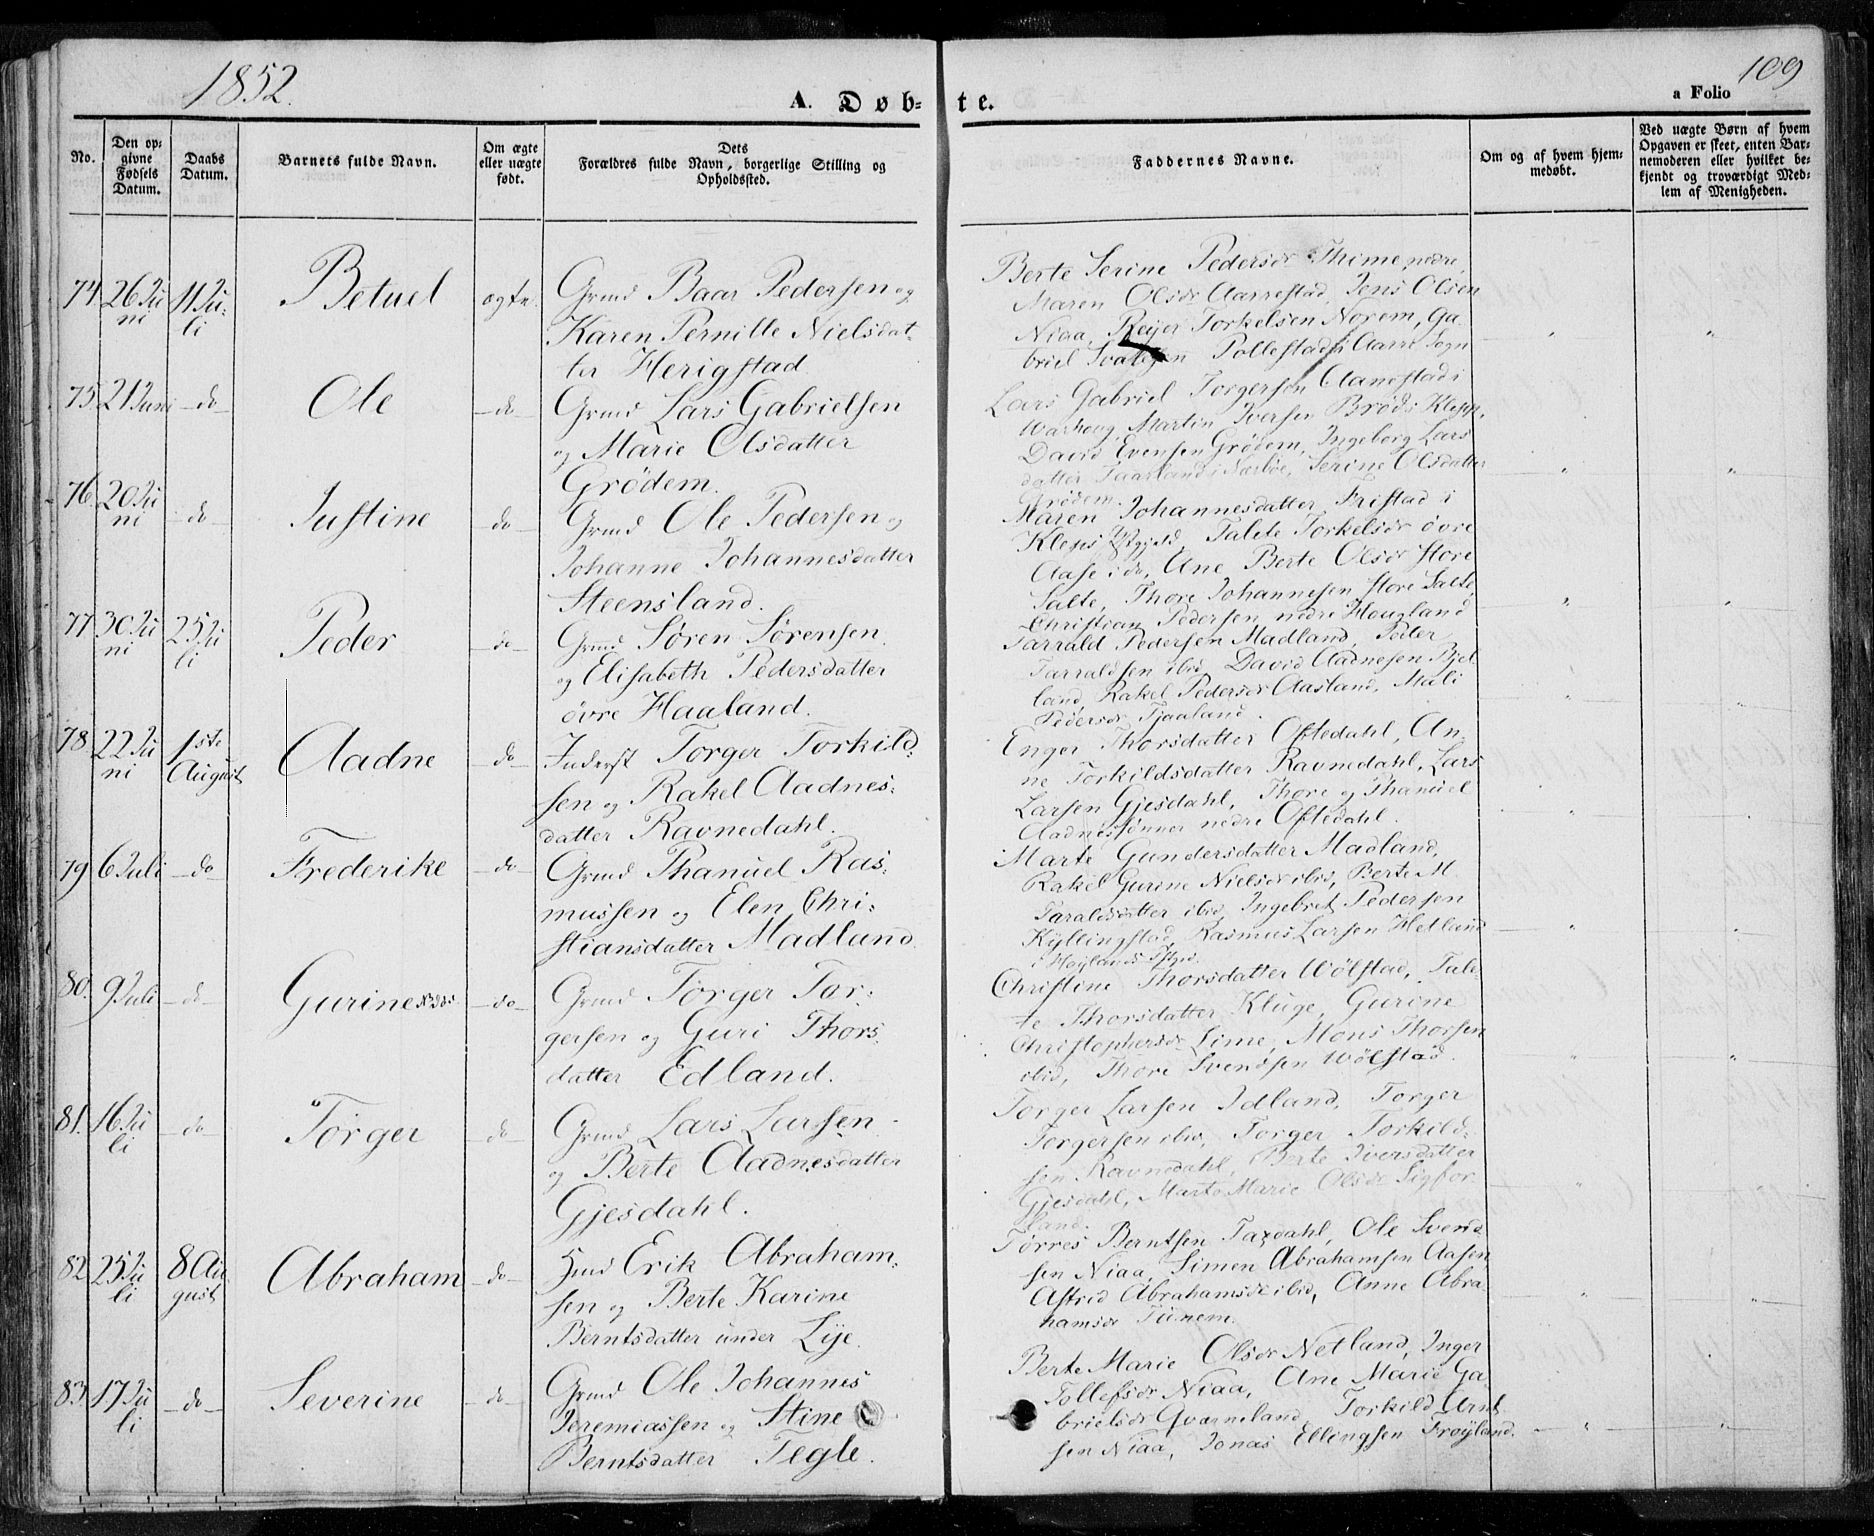 1852.
109
A. Døb-
te.
a Folio
No.
Den op-
givne
Fødsels
Datum.
Daabs
Datum.
Barnets fulde Navn.
Om ægte
eller uægte
født.
Dets
Forældres fulde Navn, borgerlige Stilling og
Opholdssted.
Faddernes Navne.
Om og af hvem hjem-
medøbt.
Ved uægte Børn af hvem
Opgaven er skeet, enten Bar-
nemoderen eller hvilket be-
kjendt og troværdigt Med-
lem af Menigheden.
74. 26 Ju
ni
11 Ju-
li
Betuel
ægte
Grmd Baar Pedersen og
Karen Pernille Nielsdat-
ter Herigstad
Berte Serine Pedersdr Thime nedre,
Maren Olsdr Aarrestad, Jens Olsen
Niaa, Reier Torkelsen Norem, Ga-
briel Pollestad i Aarre Sogn
75. 21 Juni
do
Ole
do
Grmd Lars Gabrielsen
og Marie Olsdatter
Grødem.
Lars Gabriel Torgersen Aanestad i
Warhoug, Martin Iversen Brød i Klepp,
David Evensen Grødem, Ingeborg Lars
datter Taarland i Nærbøe, Serine Olsdatter
Grødem.
76. 20 Ju
ni
do
Justine
do
Grmd Ole Pedersen og
Johanne Johannesdatter
Steensland.
Maren Johannesdatter Fristad i
Klepps Pstgjeld, Talete Torkelsdr øvre
Aase i do, Ane Berte Olsdr Store
Salte, Thore Johannesen Store Salte,
Christian Pedersen nedre Hougland
77. 30 Ju
ni
25 Ju
li
Peder
do
Grmd Søren Sørensen
og Elisabeth Pedersdatter
øvre Haaland.
Tarrald Pedersen Madland, Peder
Tarraldsen ibid, David Aadnesen Bjel
land, Rakel Pedersdr Aasland, Mali
Pedersdr Tjaaland.
78. 22 Ju
ni
1ste
August
Aadne
do
Inderst Torger Torkild-
sen og Rakel Aadnes-
datter Ravnedahl.
Enger Thorsdatter Oftedahl, An-
ne Torkildsdatter Ravnedahl, Lars
Larsen Gjesdahl, Thore og Thanuel
Aadnessønner nedre Oftedahl.
79 6 Juli
do
Frederike
do
Grmd Thanuel Ras-
mussen og Elen Chri-
stiansdatter Madland.
Marte Gundersdatter Madland,
Rakel Gurine Nielsdr ibid, Berte M.
Taraldsdatter ibid, Ingebret Pedersen
Kyllingstad, Rasmus Larsen Hetland
i Høylands Pstgd.
80. 9 Juli
do
Gurine
do
Grmd Torger Tor-
gersen og Guri Thors-
datter Edland.
Christine Thorsdatter Wølstad, Tale
te Thorsdatter Kluge, Gurine
Christophersdr Lime, Mons Thorsen
ibid, Thore Svendsen Wølstad.
81. 16 Ju
li
do
Torger
do
Grmd Lars Larsen
og Berte Aadnesdatter
Gjesdahl.
Torger Larsen Idland, Torger
Torgersen ibid, Torger Torkild-
sen Ravnedahl, Berte Iversdatter
Gjesdahl, Marte Marie Olsdr Sigfor
land.
82 25 Ju
li
8 Au
gust
Abraham
do
Hmd Erik Abraham-
sen og Berte Karine
Berntsdatter under Lye.
Tørres Berntsen Taxdahl, Ole Svend
sen Niaa, Simen Abrahamsen Aasen
Astrid Abrahamsdr ibid, Anne Abra-
hamsdr Tunem.
83. 17 Ju
li
do
Severine
do
Grmd Ole Johannes
Jeremiassen og Stine
Berntsdatter Tegle.
Berte Marie Olsdr Netland, Inger
Tollefsdr Niaa, Ane Marie Ga-
brielsdr Qværneland, Torkild Arnt
sen Niaa, Jonas Ellingsen Frøyland.